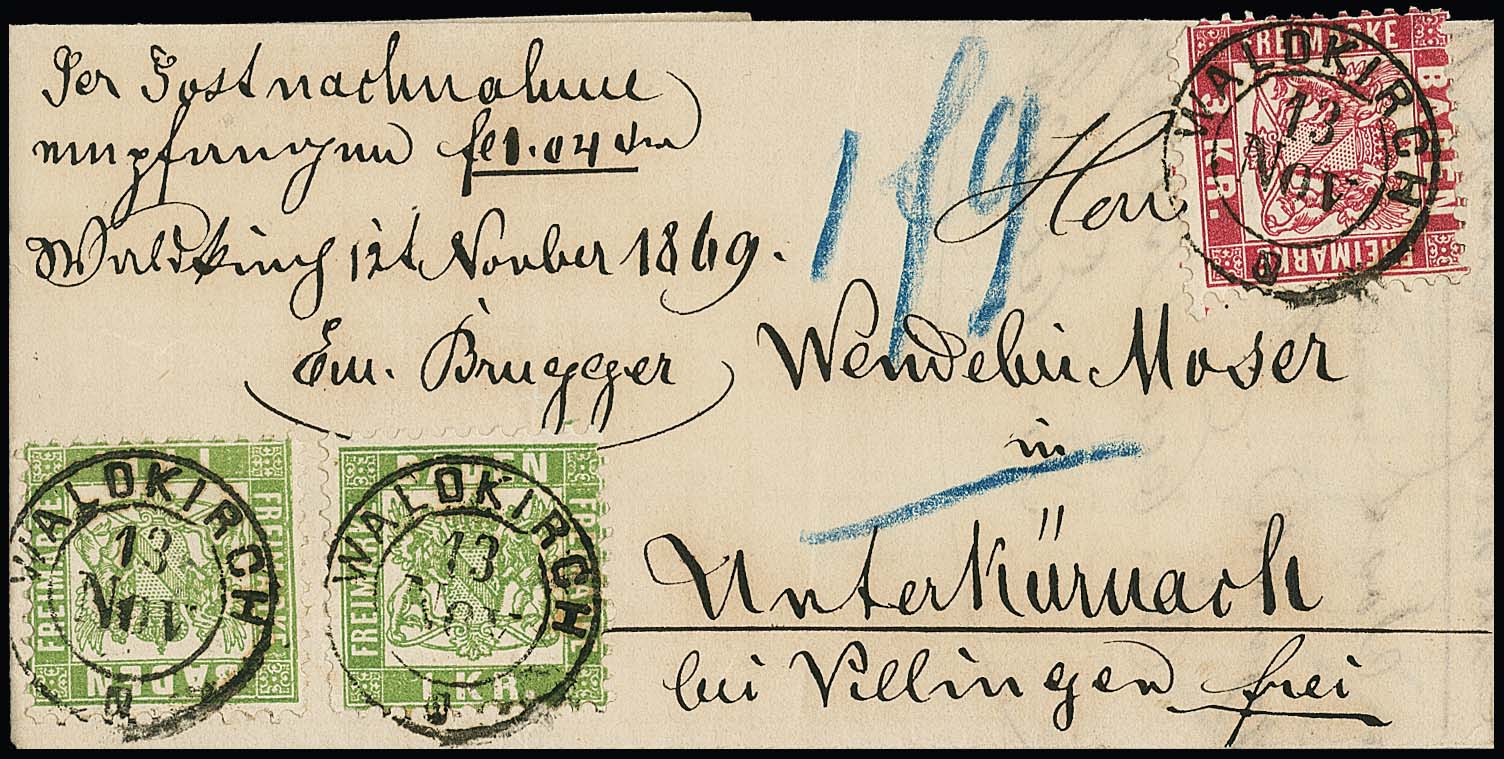 Per Postnachnahme
empfangen fl 1.04
Waldkirch 12t Novber 1869.
Em. Brugger
1 f 9
Herrn
Wendelin Moser
in
Unterkürnach
bei Villingen frei
FREIMARKE
BADEN
3 KR.
FREIMARKE
WALDKIRCH
13
NOV
FREIMARKE
BADEN
WALDKIRCH
13
NOV
BADEN
FREIMARKE
1 KR.
WALDKIRCH
13
NOV